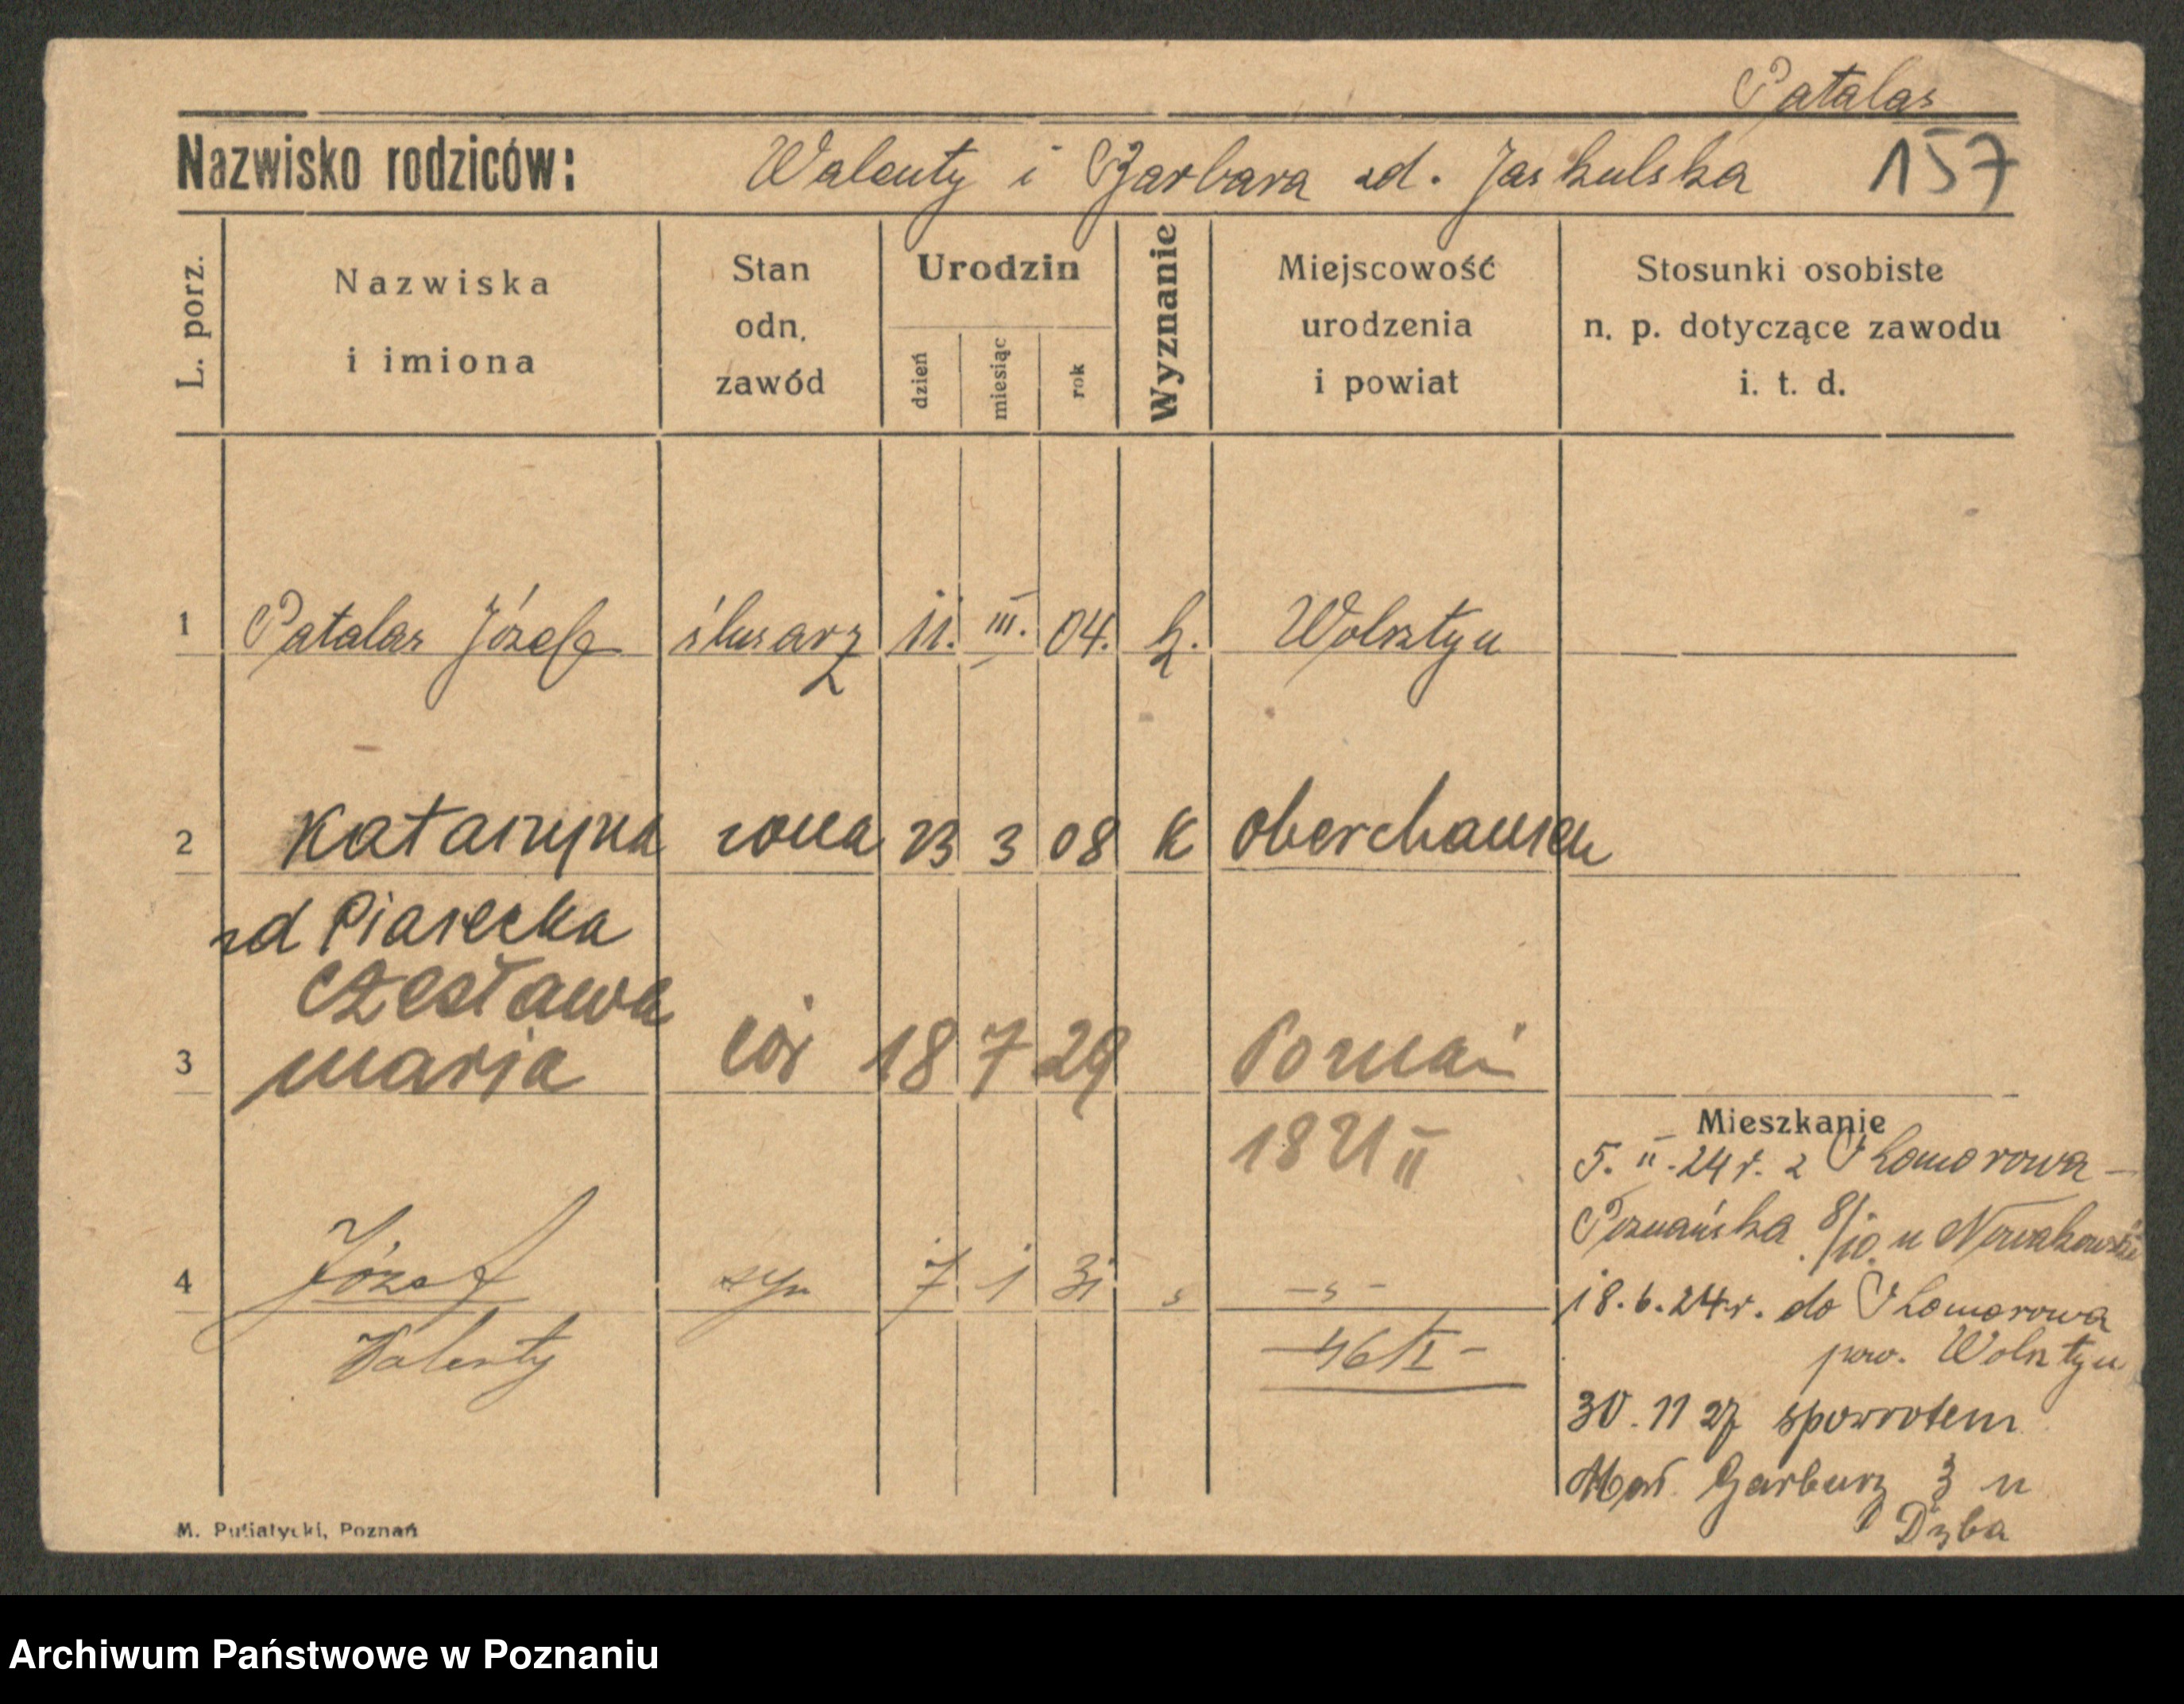 Patalas
Nazwisko rodziców: Walenty i Barbara zd. Jaskulska 157
L. porz.
Nazwiska i imiona
Stan odn. zawód
Urodzin
dzień miesiąc rok
Wyznanie
Miejscowość urodzenia i powiat
Stosunki osobiste n. p. dotyczące zawodu i. t. d.
1 Patalas Józef ślusarz 11. III. 04. k. Wolsztyn
2 Katarzyna żona 23 3 08 K Oberchausen
zd Piasecka
Czesława
3 Maria cór 18 7 29 Poznań
1821 II
4 Józef syn 7 1 31 -s-
Walenty
46/I -
Mieszkanie
5. II. 24 r. z Komorowa -
Poznańska 8/10 u Nowakowskie
18.6.24 r. do Komorowa
pow. Wolsztyn
30. 11 27 spowrotem
Garbary 3 u
M. Putiatycki, Poznań
Archiwum Państwowe w Poznaniu